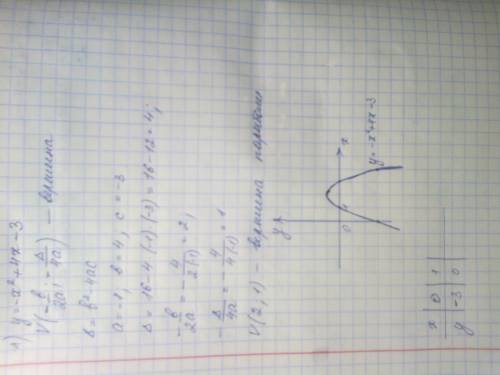 1) y=-x²+4x-3
V(-b/2a; -Δ/4a) - вершина
Δ=b²-4ac
a=-1, b=4, c=-3
Δ=16-4·(-1)·(-3)=16-12=4;
-b/2a=-4/2(-1)=2;
-Δ/4a=-4/4(-1)=1
V(2,1) - вершина параболы
y
x
0
y=-x²+4x-3
x 0 1
y -3 0